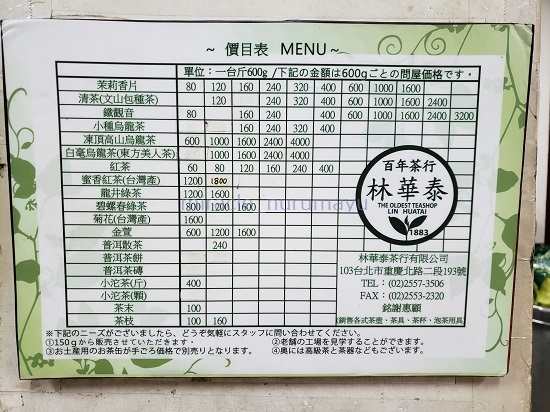 ~ 價目表 MENU ~
單位：一台斤600g /下記の金額は600gごとの問屋価格です・
茉莉香片 80 120 160 240 320 400 600 1000 1600
清茶(文山包種茶) 120 240 320 400 600 1000 1600 2400
鐵觀音 80 160 240 320 400 600 1000 1600 2400 3200
小種烏龍茶 160 240 320 400
凍頂高山烏龍茶 600 1000 1600 2400 4000
白毫烏龍茶(東方美人茶) 1000 1600 2400 4000
紅茶 60 80 120 160 240 400
蜜香紅茶(台灣產) 1200 1800
龍井綠茶 1200 1600
碧螺春綠茶 800 1200 1600
菊花(台灣產) 1600
金萱 600 1200 1600
普洱散茶 240
普洱茶餅
普洱茶磚
小沱茶(斤) 400
小沱茶(顆)
茶末 100
茶枝 100 160
百年茶行
林華泰
THE OLDEST TEASHOP
LIN HUATAI
1883
林華泰茶行有限公司
103台北市重慶北路二段193號
TEL：(02)2557-3506
FAX：(02)2553-2320
銘謝惠顧
(銷售各式茶壺、茶具、茶杯、泡茶用具)
※下記のニーズがございましたら、どうぞ気軽にスタッフに問い合わせてください。
①150gから販売させていただきます・ ②老舗の工場を見学することができます。
③お土産用のお茶缶が手ごろ価格で別売りとなります。 ④奥には高級茶と茶器などもございます。